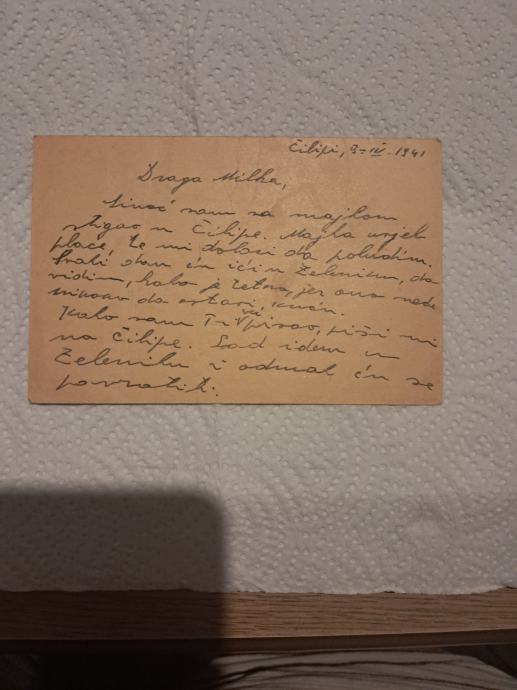 Čilipi, 9-IV-1941
Draga Milka,
Sinoć sam sa majkom
stigao u Čilipe. Majka uvjek
plače, te mi dolazi da poludim.
Svaki dan ću ići u Zeleniku, da
vidim, kako je Tetka, jer ona neće
nikako da ostavi, kuću.
Kako sam Ti već pisao, piši mi
na Čilipe. Sad idem u
Zeleniku i odmah ću se
povratiti.